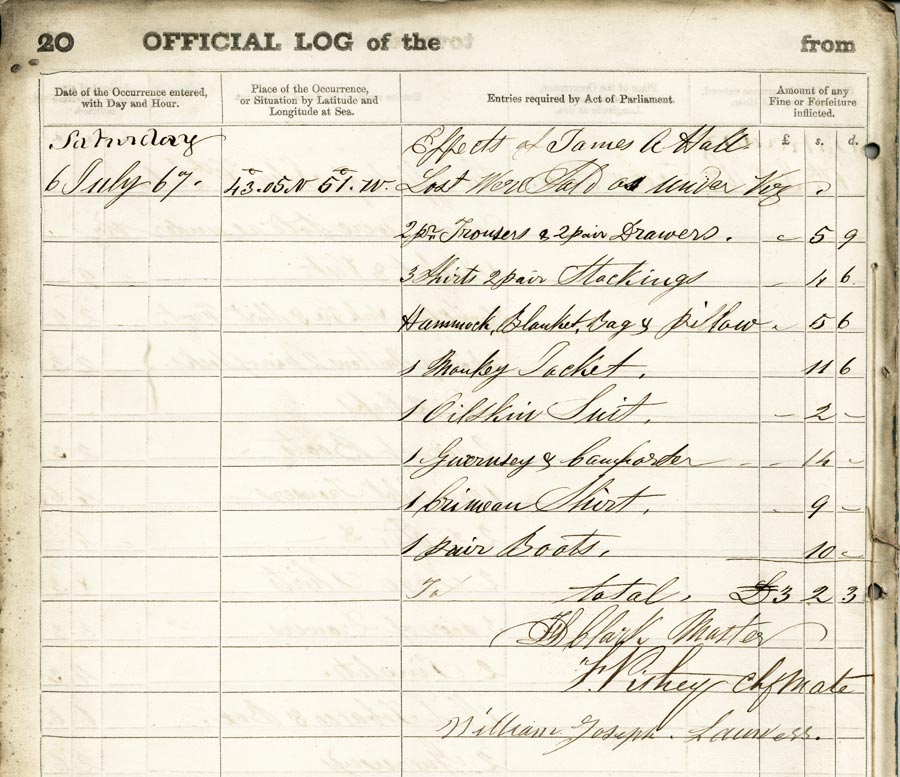 20 OFFICIAL LOG of the from
Date of the Occurrence entered, with Day and Hour.
Place of the Occurrence, or Situation by Latitude and Longitude at Sea.
Entries required by Act of Parliament.
Amount of any Fine or Forfeiture inflicted.
£ s. d.
Saturday Effects of James A Hall
6 July 67. 43.05.N 51.W. Lost Were Sold as under Viz
2 pr. Trousers & 2 pair Drawers. 5 9
3 Shirts 2 pair Stockings 4 6
Hammock, Blanket, Bag & pillow 5 6
1 Monkey Jacket. 11 6
1 Oilskin Suit. - 2 -
1 Guernsey & Comforter 14 -
1 Crimean Shirt. 9 -
1 pair Boots. 10 -
total. £3 2 3
Clark Master
chf Mate
William Joseph